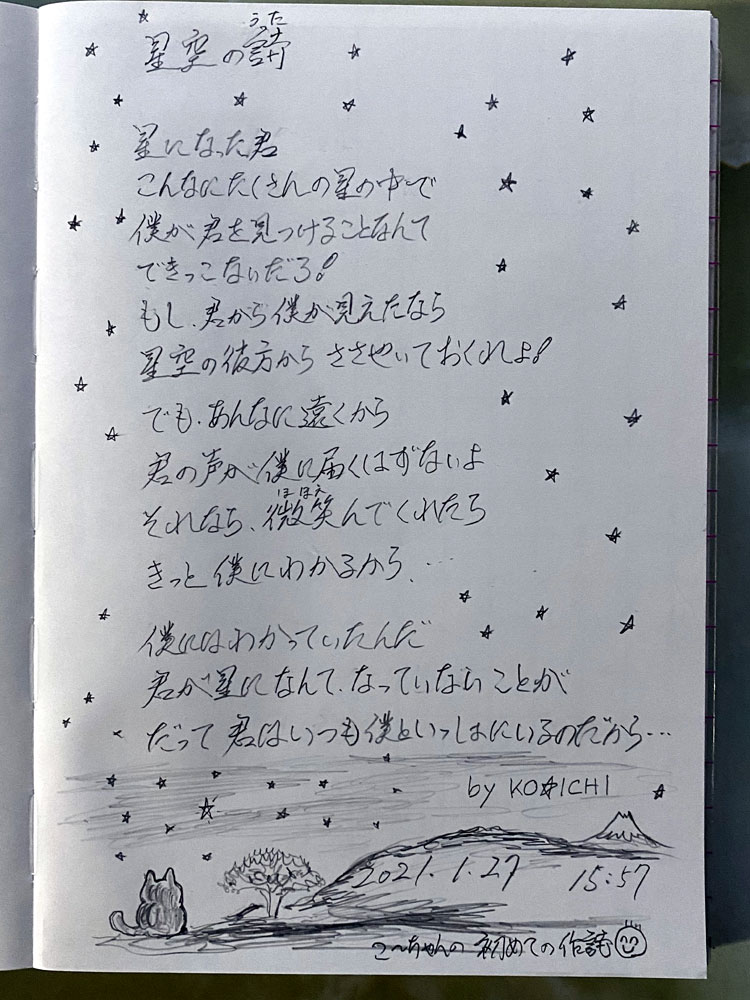 うた
星空の詩
星になった君
こんなにたくさんの星の中で
僕が君を見つけることなんて
できっこないだろ!
もし、君から僕が見えたなら
星空の彼方から ささやいておくれよ!
でも、あんなに遠くから
君の声が僕に届くはずないよ
ほほえ
それなら、微笑んでくれたら
きっと僕にわかるから、…
僕にはわかっていたんだ
君が星になんて、なっていないことが
だって 君はいつも僕といっしょにいるのだから…
by KO☆ICHI
2021.1.27 15:57
こ〜ちゃんの 初めての作詩